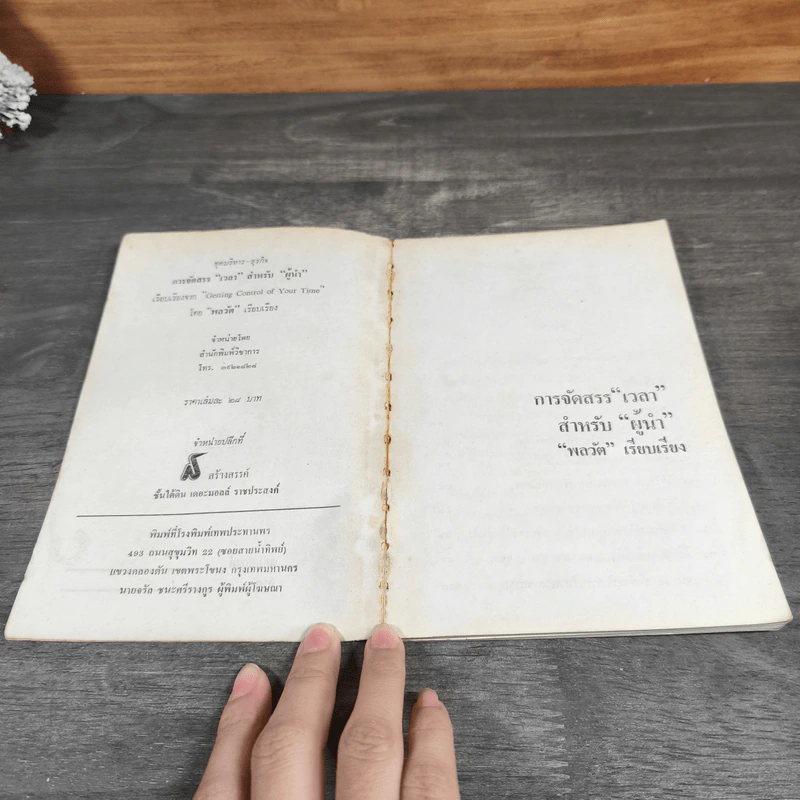 ชุดบริหาร-ธุรกิจ
การจัดสรร "เวลา" สำหรับ "ผู้นำ"
เรียบเรียงจาก "Getting Control of Your Time"
โดย "พลวัต" เรียบเรียง
จำหน่ายโดย
สำนักพิมพ์วิชาการ
โทร.
ราคาเล่มละ ๒๘ บาท
จำหน่ายปลีกที่
สร้างสรรค์
ชั้นใต้ดิน เดอะมอลล์ ราชประสงค์
พิมพ์ที่โรงพิมพ์เทพประทานพร
493 ถนนสุขุมวิท 22 (ซอยสายน้ำทิพย์)
แขวงคลองตัน เขตพระโขนง กรุงเทพมหานคร
นายจรัล ชนะศรีรางกูร ผู้พิมพ์ผู้โฆษณา
การจัดสรร "เวลา"
สำหรับ "ผู้นำ"
"พลวัต" เรียบเรียง